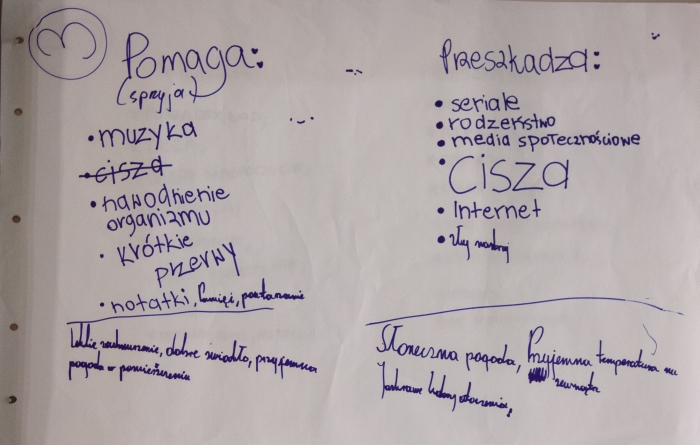 3
Pomaga:
(sprzyja)
• muzyka
• cisza
• nawodnienie
organizmu
• krótkie
przerwy
• notatki, Pamięć, powtarzanie
Lekkie zachmurzenie, dobre światło, przyjemna
pogoda w pomieszczeniu
Przeszkadza:
• seriale
• rodzeństwo
• media społecznościowe
• CISZA
• Internet
• zły nastrój
Słoneczna pogoda, Przyjemna temperatura na
zewnątrz
Jaskrawe kolory otoczenia,